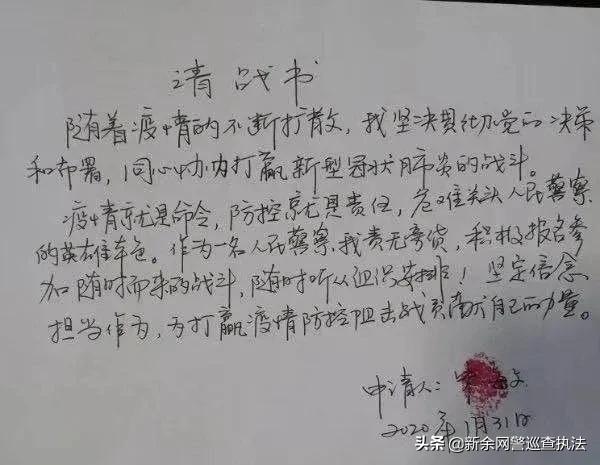 请战书
随着疫情的不断扩散，我坚决贯彻党的决策
和布署，同心协力打赢新型冠状肺炎的战斗。
疫情就是命令，防控就是责任，危难关头人民警察
的英雄本色。作为一名人民警察，我责无旁贷，积极报名参
加随时而来的战斗，随时听从组织安排，坚定信念
担当作为，为打赢疫情防控阻击战贡献自己的力量。
申请人：
2020年1月31日
头条@新余网警巡查执法